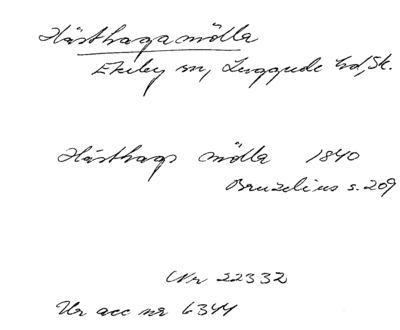 Hästhagamölla
Ekeby sn, Luggude hd, Sk.
Hästhags mölla 1840
Bruzelius s. 209
Nr 22332
Ur acc nr 6344